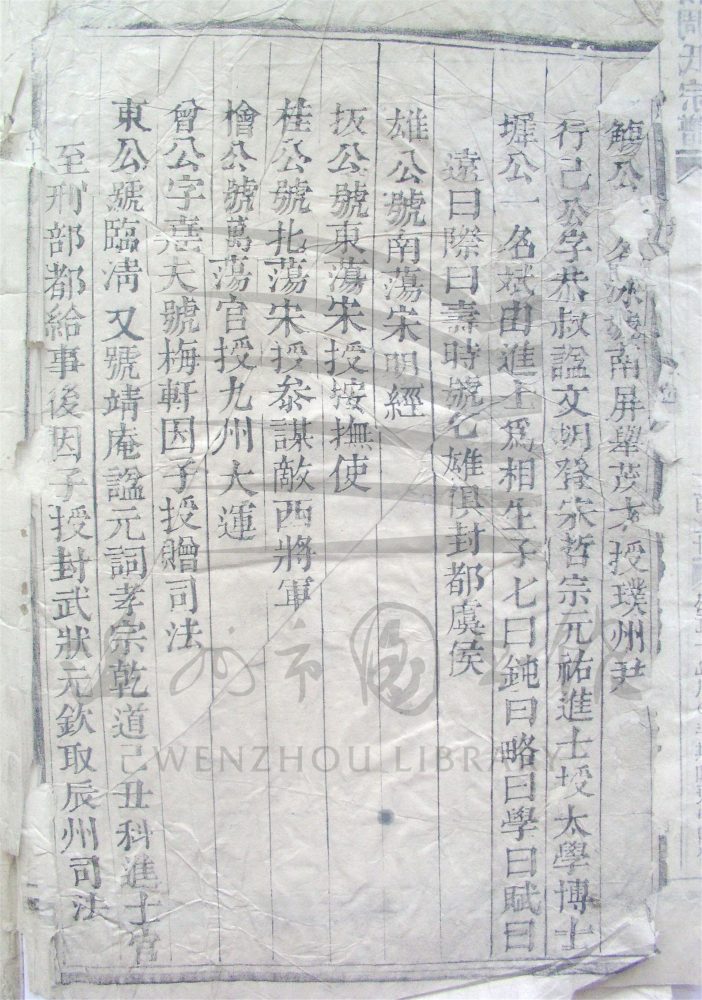 觴公 名 號南屏舉茂才授璞州尹
行己公字恭叔諡文明登宋哲宗元祐進士授太學博士
墀公一名斌由進士爲相生子七曰鈍曰略曰學曰賦曰
遠曰際曰壽時號七雄俱封都虞侯
雄公號南蕩宋明經
扳公號東蕩宋授按撫使
桂公號北蕩宋授叅謀敵西將軍
檜公號萬蕩官授九州大運
曾公字 夫號梅軒因子授贈司法
東公號臨淸又號靖庵諡元詞孝宗乾道己丑科進士官
至刑部都給事後因子授封武狀元欽取辰州司法
周氏宗譜
溫州市圖書館
WENZHOU LIBRARY